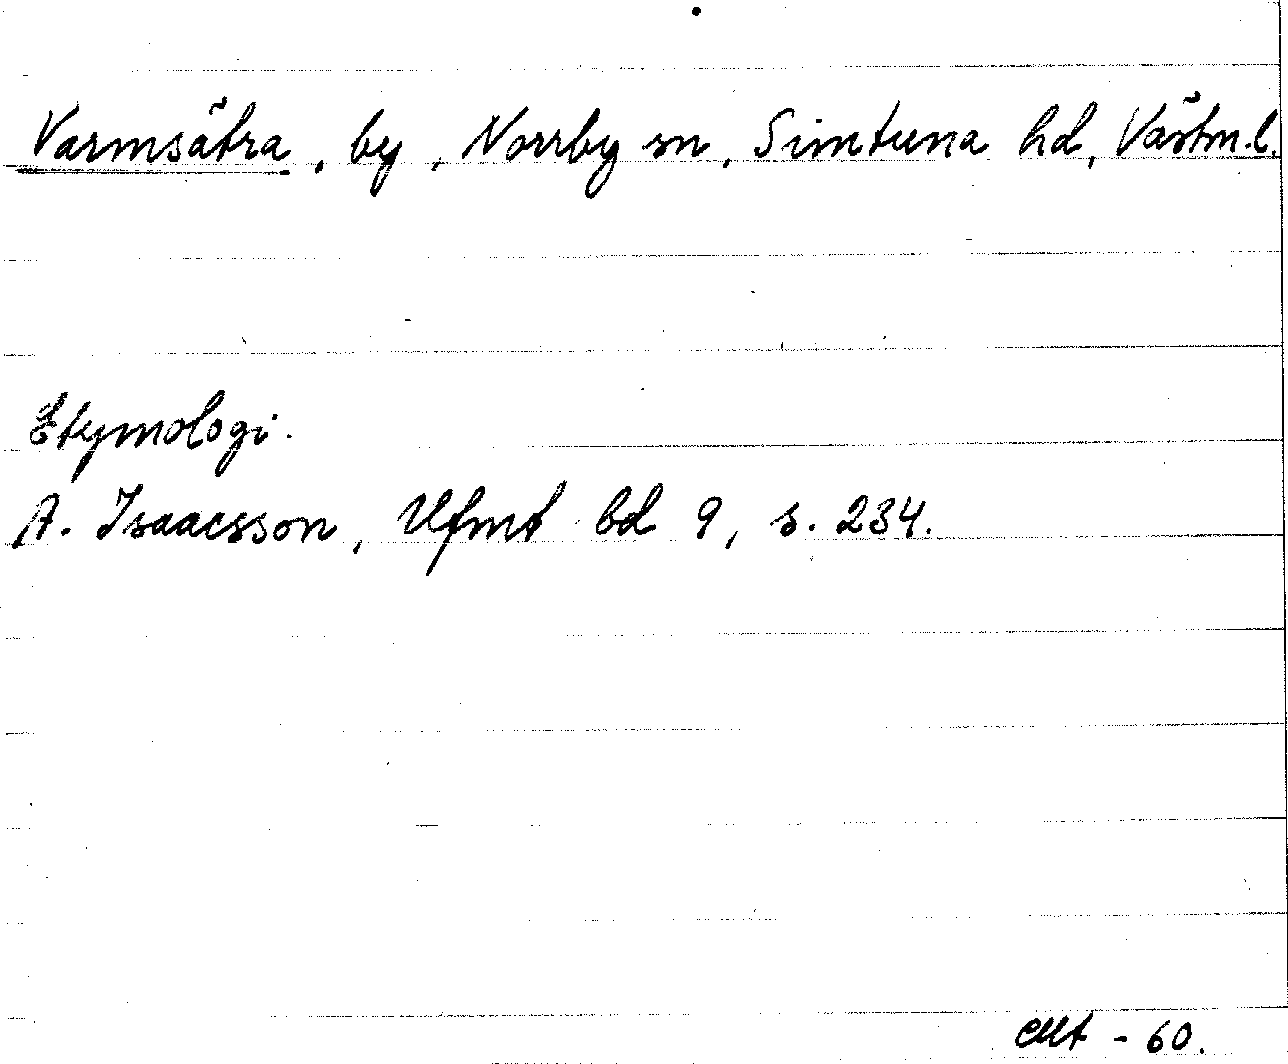 Varmsätra, by, Norrby sn, Simtuna hd, Västm.l.
Etymologi.
A. Isaacsson, Ufmt bd 9, s. 234.
- 60.